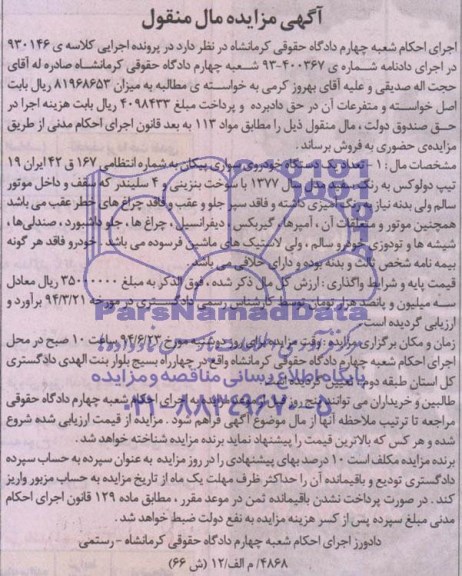 آگهی مزایده مال منقول
اجرای احکام شعبه چهارم دادگاه حقوقی کرمانشاه در نظر دارد در پرونده اجرایی کلاسه ی ۹۳۰۱۴۶
در اجرای دادنامه شماره ی ۴۰۰۳۶۷-۹۳ شعبه چهارم دادگاه حقوقی کرمانشاه صادره له آقای
حجت اله صدیقی و علیه آقای بهروز کرمی به خواسته ی مطالبه به میزان ۸۱۹۶۸۶۵۳ ریال بابت
اصل خواسته و متفرعات آن در حق دادبرده و پرداخت مبلغ ۴۰۹۸۴۳۳ ریال بابت هزینه اجرا در
حق صندوق دولت ، مال منقول ذیل را مطابق مواد ۱۱۳ به بعد قانون اجرای احکام مدنی از طریق
مزایده‌ی حضوری به فروش برساند .
مشخصات مال : ۱ - تعداد یک دستگاه خودروی سواری پیکان به شماره انتظامی ۱۶۷ ق ۴۲ ایران ۱۹
تیپ دولوکس به رنگ مدل سال ۱۳۷۷ با سوخت بنزینی و ۴ سیلیندر که سقف و داخل موتور
سالم ولی بدنه نیاز به رنگ آمیزی داشته و فاقد سپر جلو و عقب و فاقد چراغ های خطر عقب می باشد
همچنین موتور و متعلقات آن ، آمپرها، گیربکس ، دیفرانسیل ، چراغ ها ، جلو داشبورد ، صندلی‌ها ،
شیشه ها و تودوزی خودرو سالم ، ولی لاستیک های ماشین فرسوده می باشد . خودرو فاقد هر گونه
بیمه نامه شخص ثالث و بدنه بوده و دارای خلافی می باشد.
قیمت پایه و شرایط واگذاری : ارزش کل مال ذکر شده ، فوق الذکر به مبلغ ۳۵۰۰۰۰۰۰ ریال معادل
سه میلیون و پانصد هزار تومان توسط کارشناس رسمی دادگستری در مورخه ۹۴/۳/۲۱ برآورد و
ارزیابی گردیده است .
زمان و مکان برگزاری مزایده : وقت مزایده برای روز دوشنبه مورخ ۹۴/۶/۲۳ ساعت ۱۰ صبح در محل
اجرای احکام شعبه چهارم دادگاه حقوقی کرمانشاه واقع در چهارراه بسیج بلوار بنت الهدی دادگستری
کل استان طبقه دوم ، تعیین گردیده است .
طالبین و خریداران می توانند پنج روز قبل از مزایده به اجرای احکام شعبه چهارم دادگاه حقوقی
مراجعه تا ترتیب ملاحظه آنها از مال موضوع آگهی فراهم شود . مزایده از قیمت ارزیابی شده شروع
شده و هر کس که بالاترین قیمت را پیشنهاد نماید برنده مزایده شناخته خواهد شد.
برنده مزایده مکلف است ۱۰ درصد بهای پیشنهادی را در روز مزایده به عنوان سپرده به حساب سپرده
دادگستری تودیع و باقیمانده آن را حداکثر ظرف مهلت یک ماه از تاریخ مزایده به حساب مزبور واریز
کند . در صورت پرداخت نشدن باقیمانده ثمن در موعد مقرر ، مطابق ماده ۱۲۹ قانون اجرای احکام
مدنی مبلغ سپرده پس از کسر هزینه مزایده به نفع دولت ضبط خواهد شد .
دادورز اجرای احکام شعبه چهارم دادگاه حقوقی کرمانشاه - رستمی
۴۸۶۸/ م الف/۱۲ (ش ۶۶)
ParsNamadData
پایگاه اطلاع رسانی مناقصه و مزایده
۰۲۱-۸۸۳۴۹۶۷۰-۵